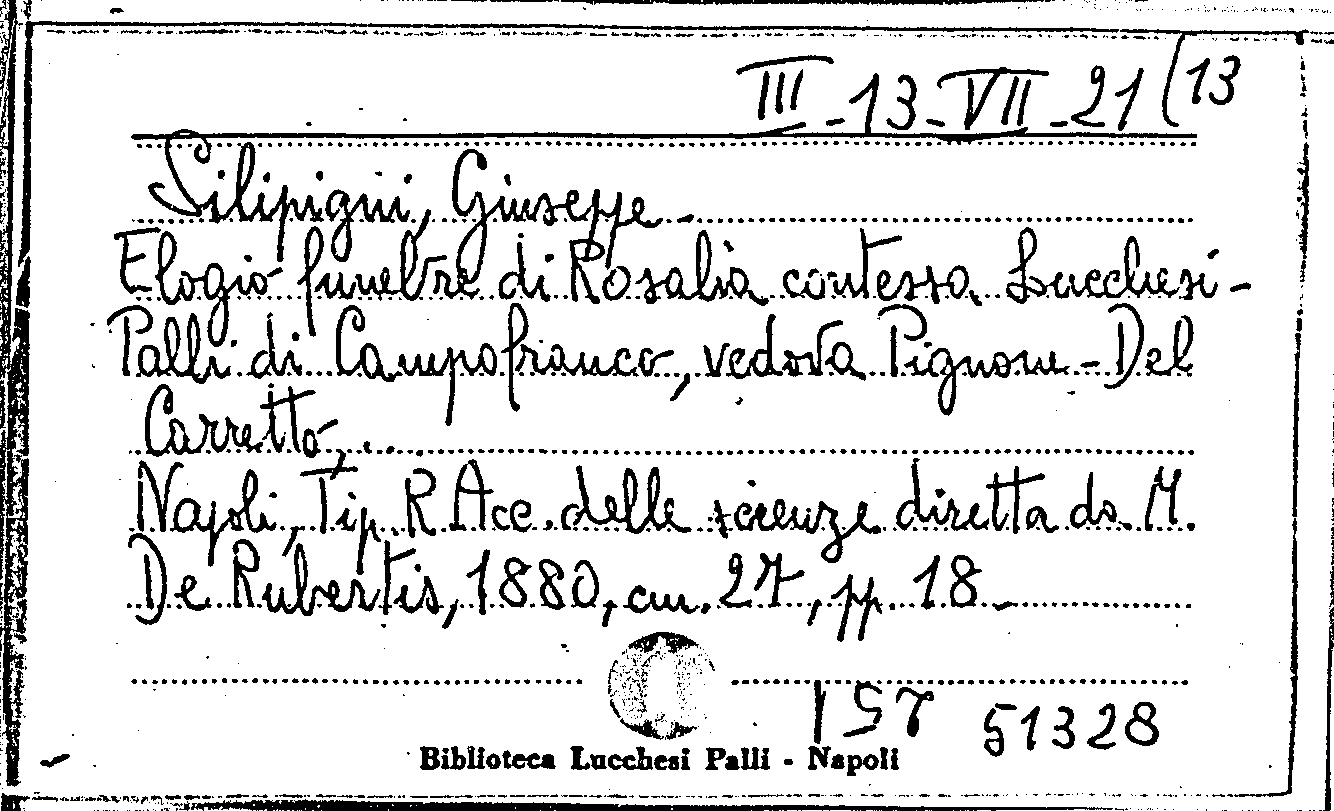 III-13-VII-21(13
Silipigni, Giuseppe.
Elogio funebre di Rosalia contessa Lucchesi-
Palli di Campofranco, vedova Pignone-Del
Carretto,...
Napoli, Tip. R. Acc. delle scienze diretta da M.
De Rubertis, 1880, cm. 27, pp. 18.
157 51328
Biblioteca Lucchesi Palli - Napoli